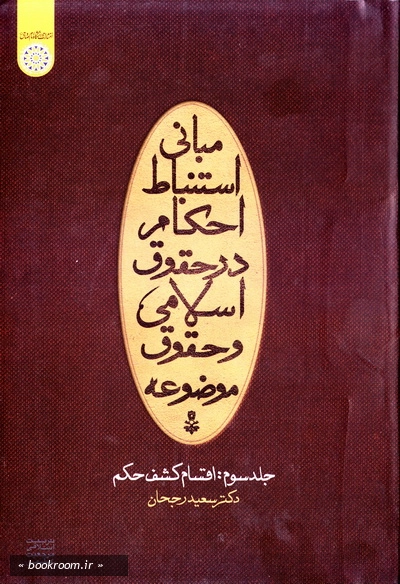 مبانی
استنباط
احکام
در حقوق
اسلامی
و حقوق
موضوعه
جلد سوم: اقسام کشف حکم
دکتر سعید رجحان
« bookroom.ir »